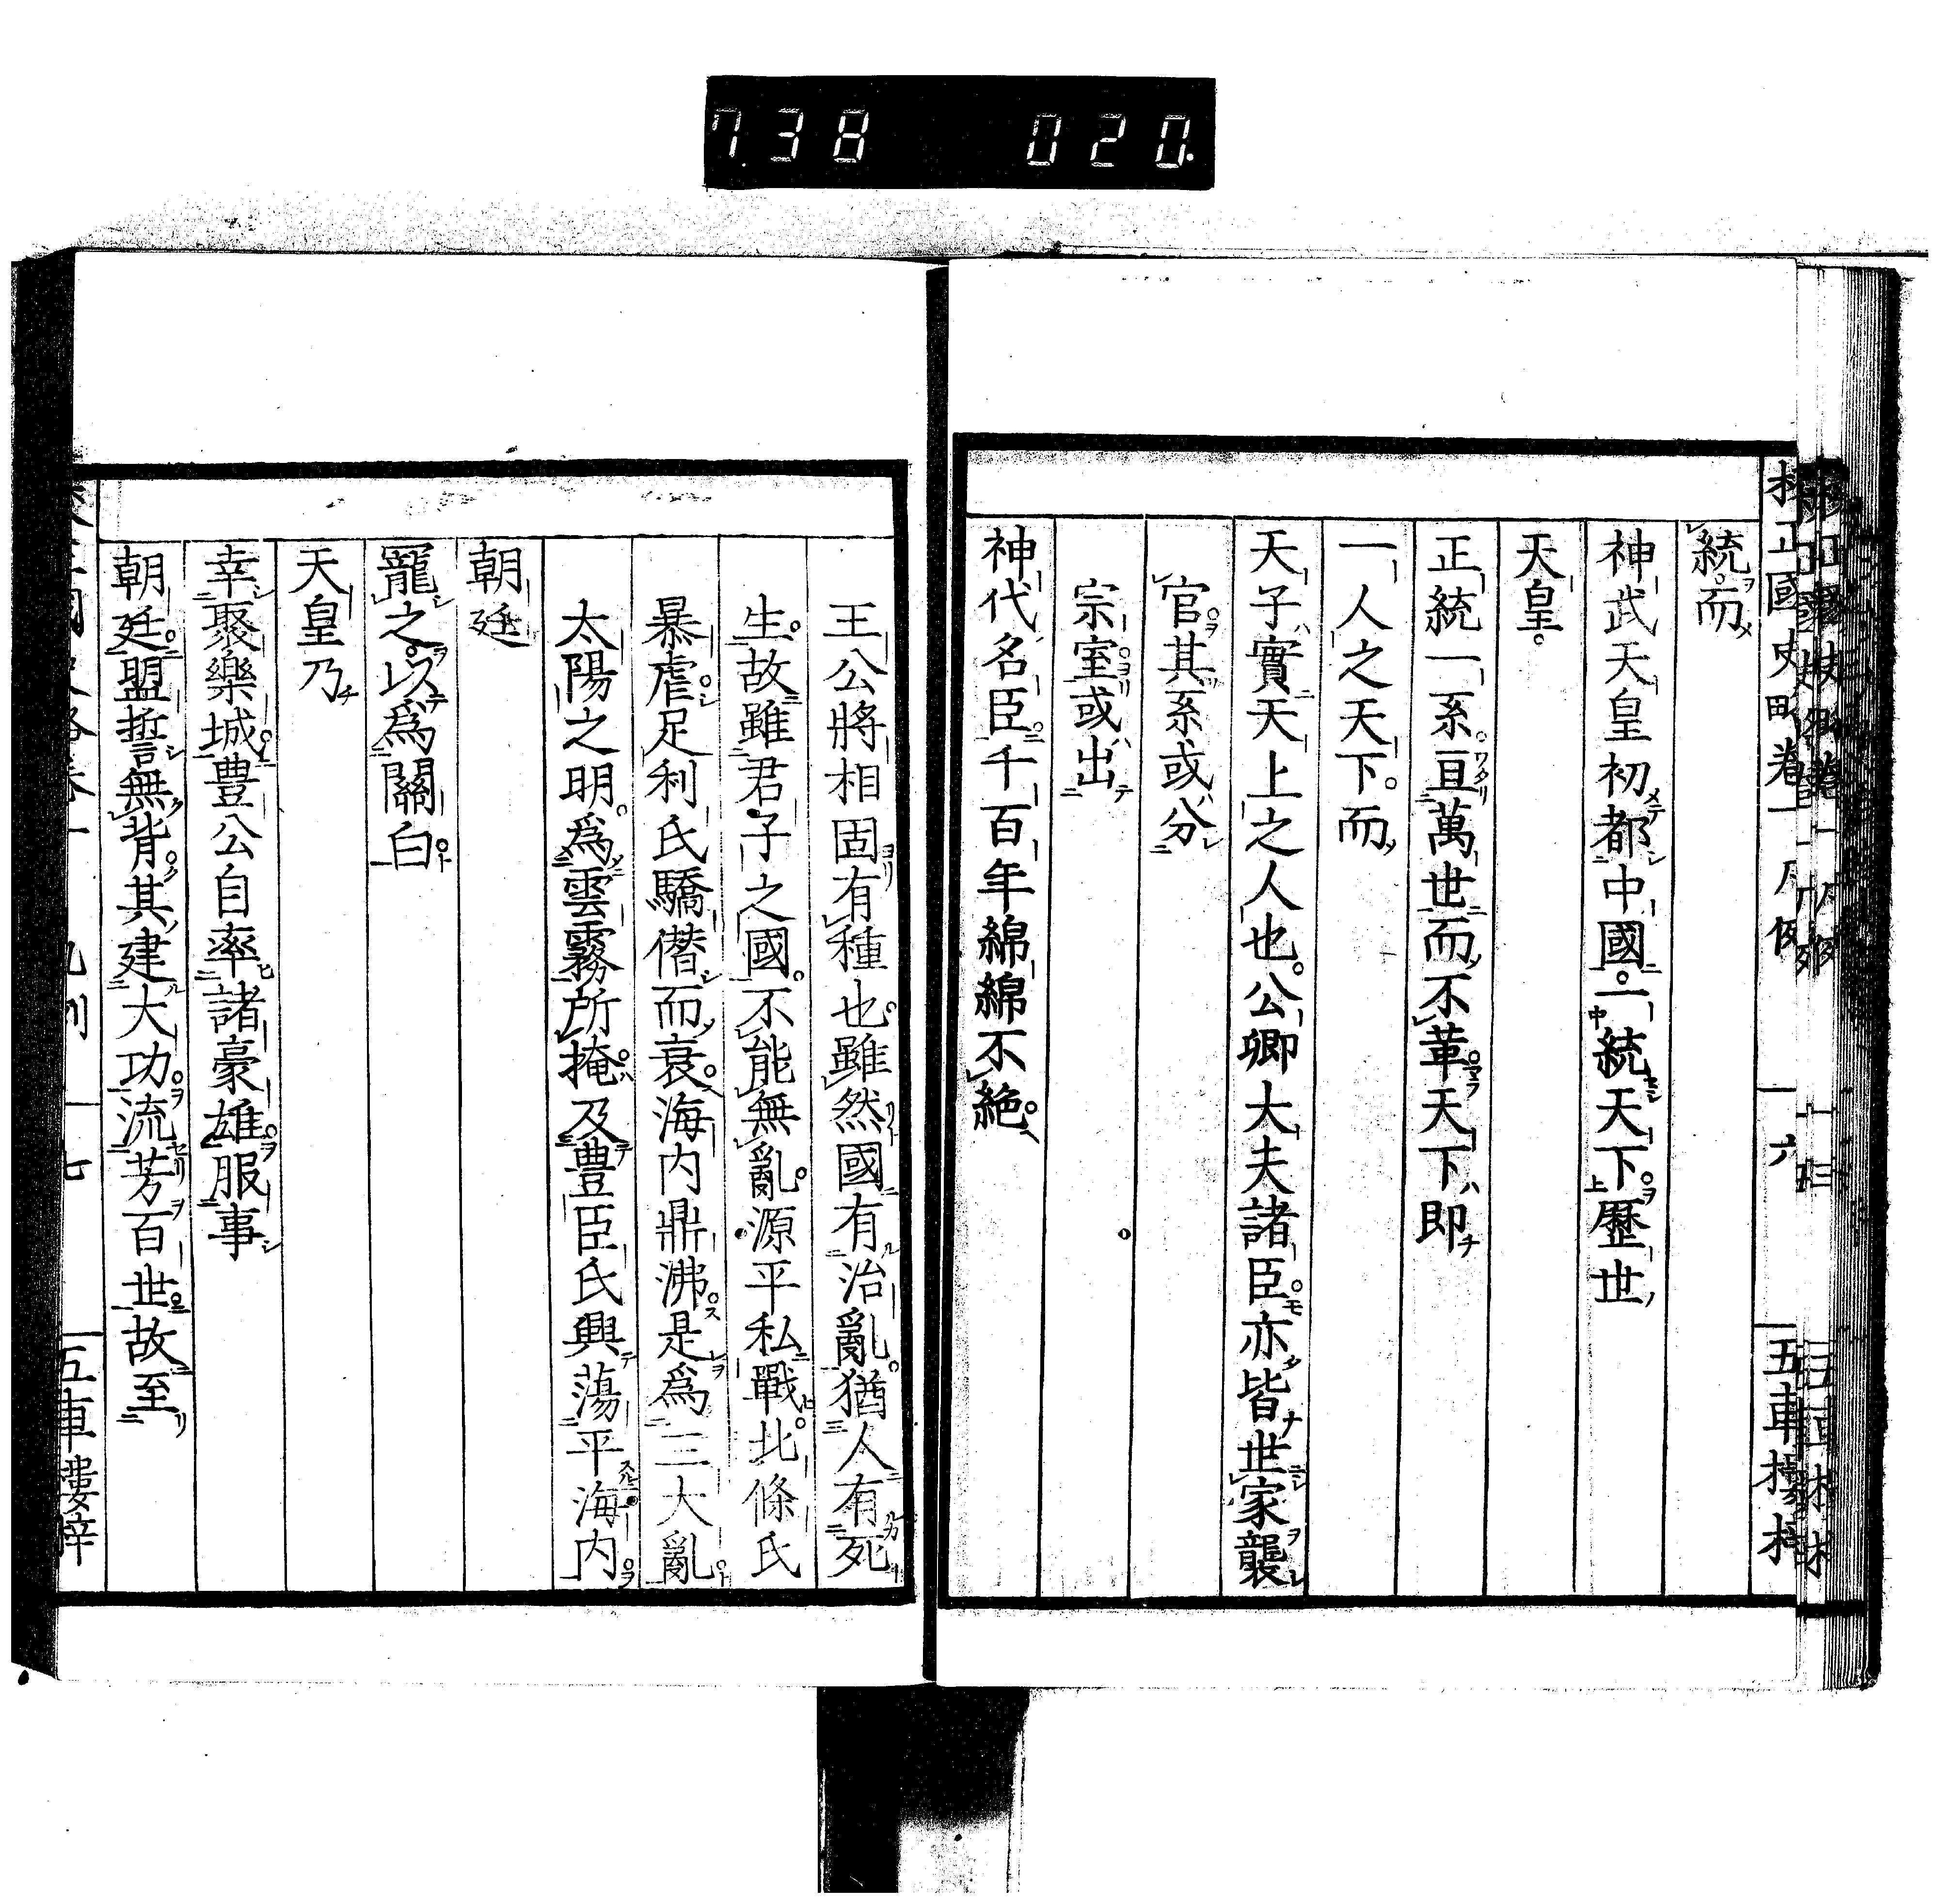 738 020.
校正國史略卷一 凡例 六 五車樓梓
統而
神武天皇初都中國一統天下歷世
天皇
正統一系亘萬世而不革天下即
一人之天下而
天子實天上之人也公卿大夫諸臣亦皆世家襲
官其系或分
宗室或出
神代名臣千百年綿綿不絶
王公將相固有種也雖然國有治亂猶人有死
生故雖君子之國不能無亂源平私戰北條氏
暴虐足利氏驕僭而衰海内鼎沸是爲三大亂
太陽之明爲雲霧所掩及豊臣氏興蕩平海内
朝廷
寵之以爲關白
天皇乃
幸聚樂城豊公自率諸豪雄服事
朝廷盟誓無背其建大功流芳百世故至
七 五車樓梓